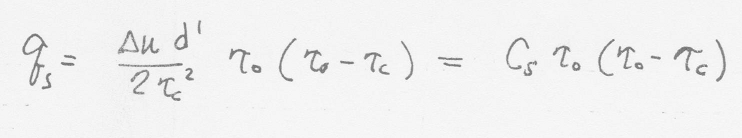 q_s = \frac{\Delta u \, d'}{2 \tau_c^2} \tau_o (\tau_o - \tau_c) = C_s \tau_o (\tau_o - \tau_c)